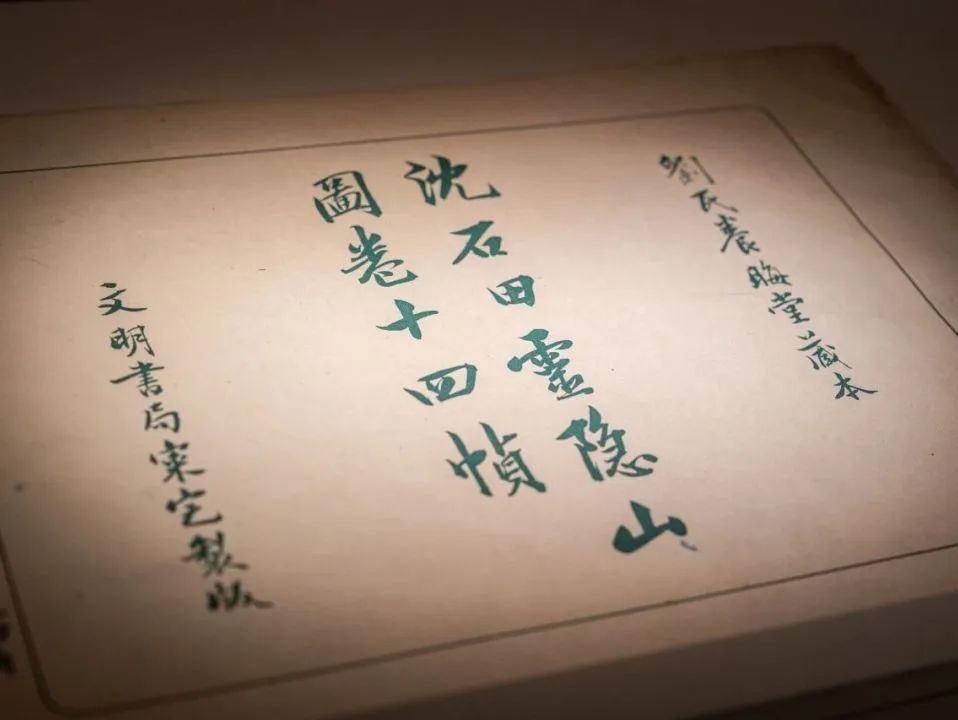 劉氏養晦堂藏本
沈石田靈隱山
圖卷十四幀
文明書局審定製版